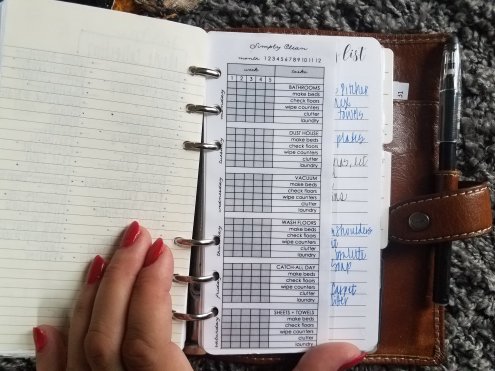 Simply Clean
list
month 1 2 3 4 5 6 7 8 9 10 11 12
week tasks
1 2 3 4 5
monday
BATHROOMS
make beds
check floors
wipe counters
clutter
laundry
tuesday
DUST HOUSE
make beds
check floors
wipe counters
clutter
laundry
wednesday
VACUUM
make beds
check floors
wipe counters
clutter
laundry
thursday
WASH FLOORS
make beds
check floors
wipe counters
clutter
laundry
friday
CATCH-ALL DAY
make beds
check floors
wipe counters
clutter
laundry
saturday
SHEETS + TOWELS
make beds
check floors
wipe counters
clutter
laundry
towels
soap
carpet